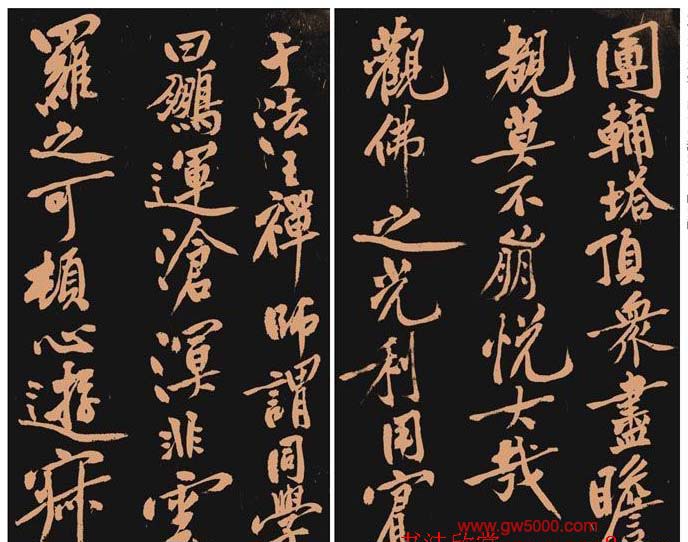 團輔塔頂衆盡瞻
覩莫不崩悅大哉
觀佛之光利用賓
于法王禪師謂同學
曰鵬運滄溟非雲
羅之可頓心遊寂
www.gw5000.com
书法欣赏